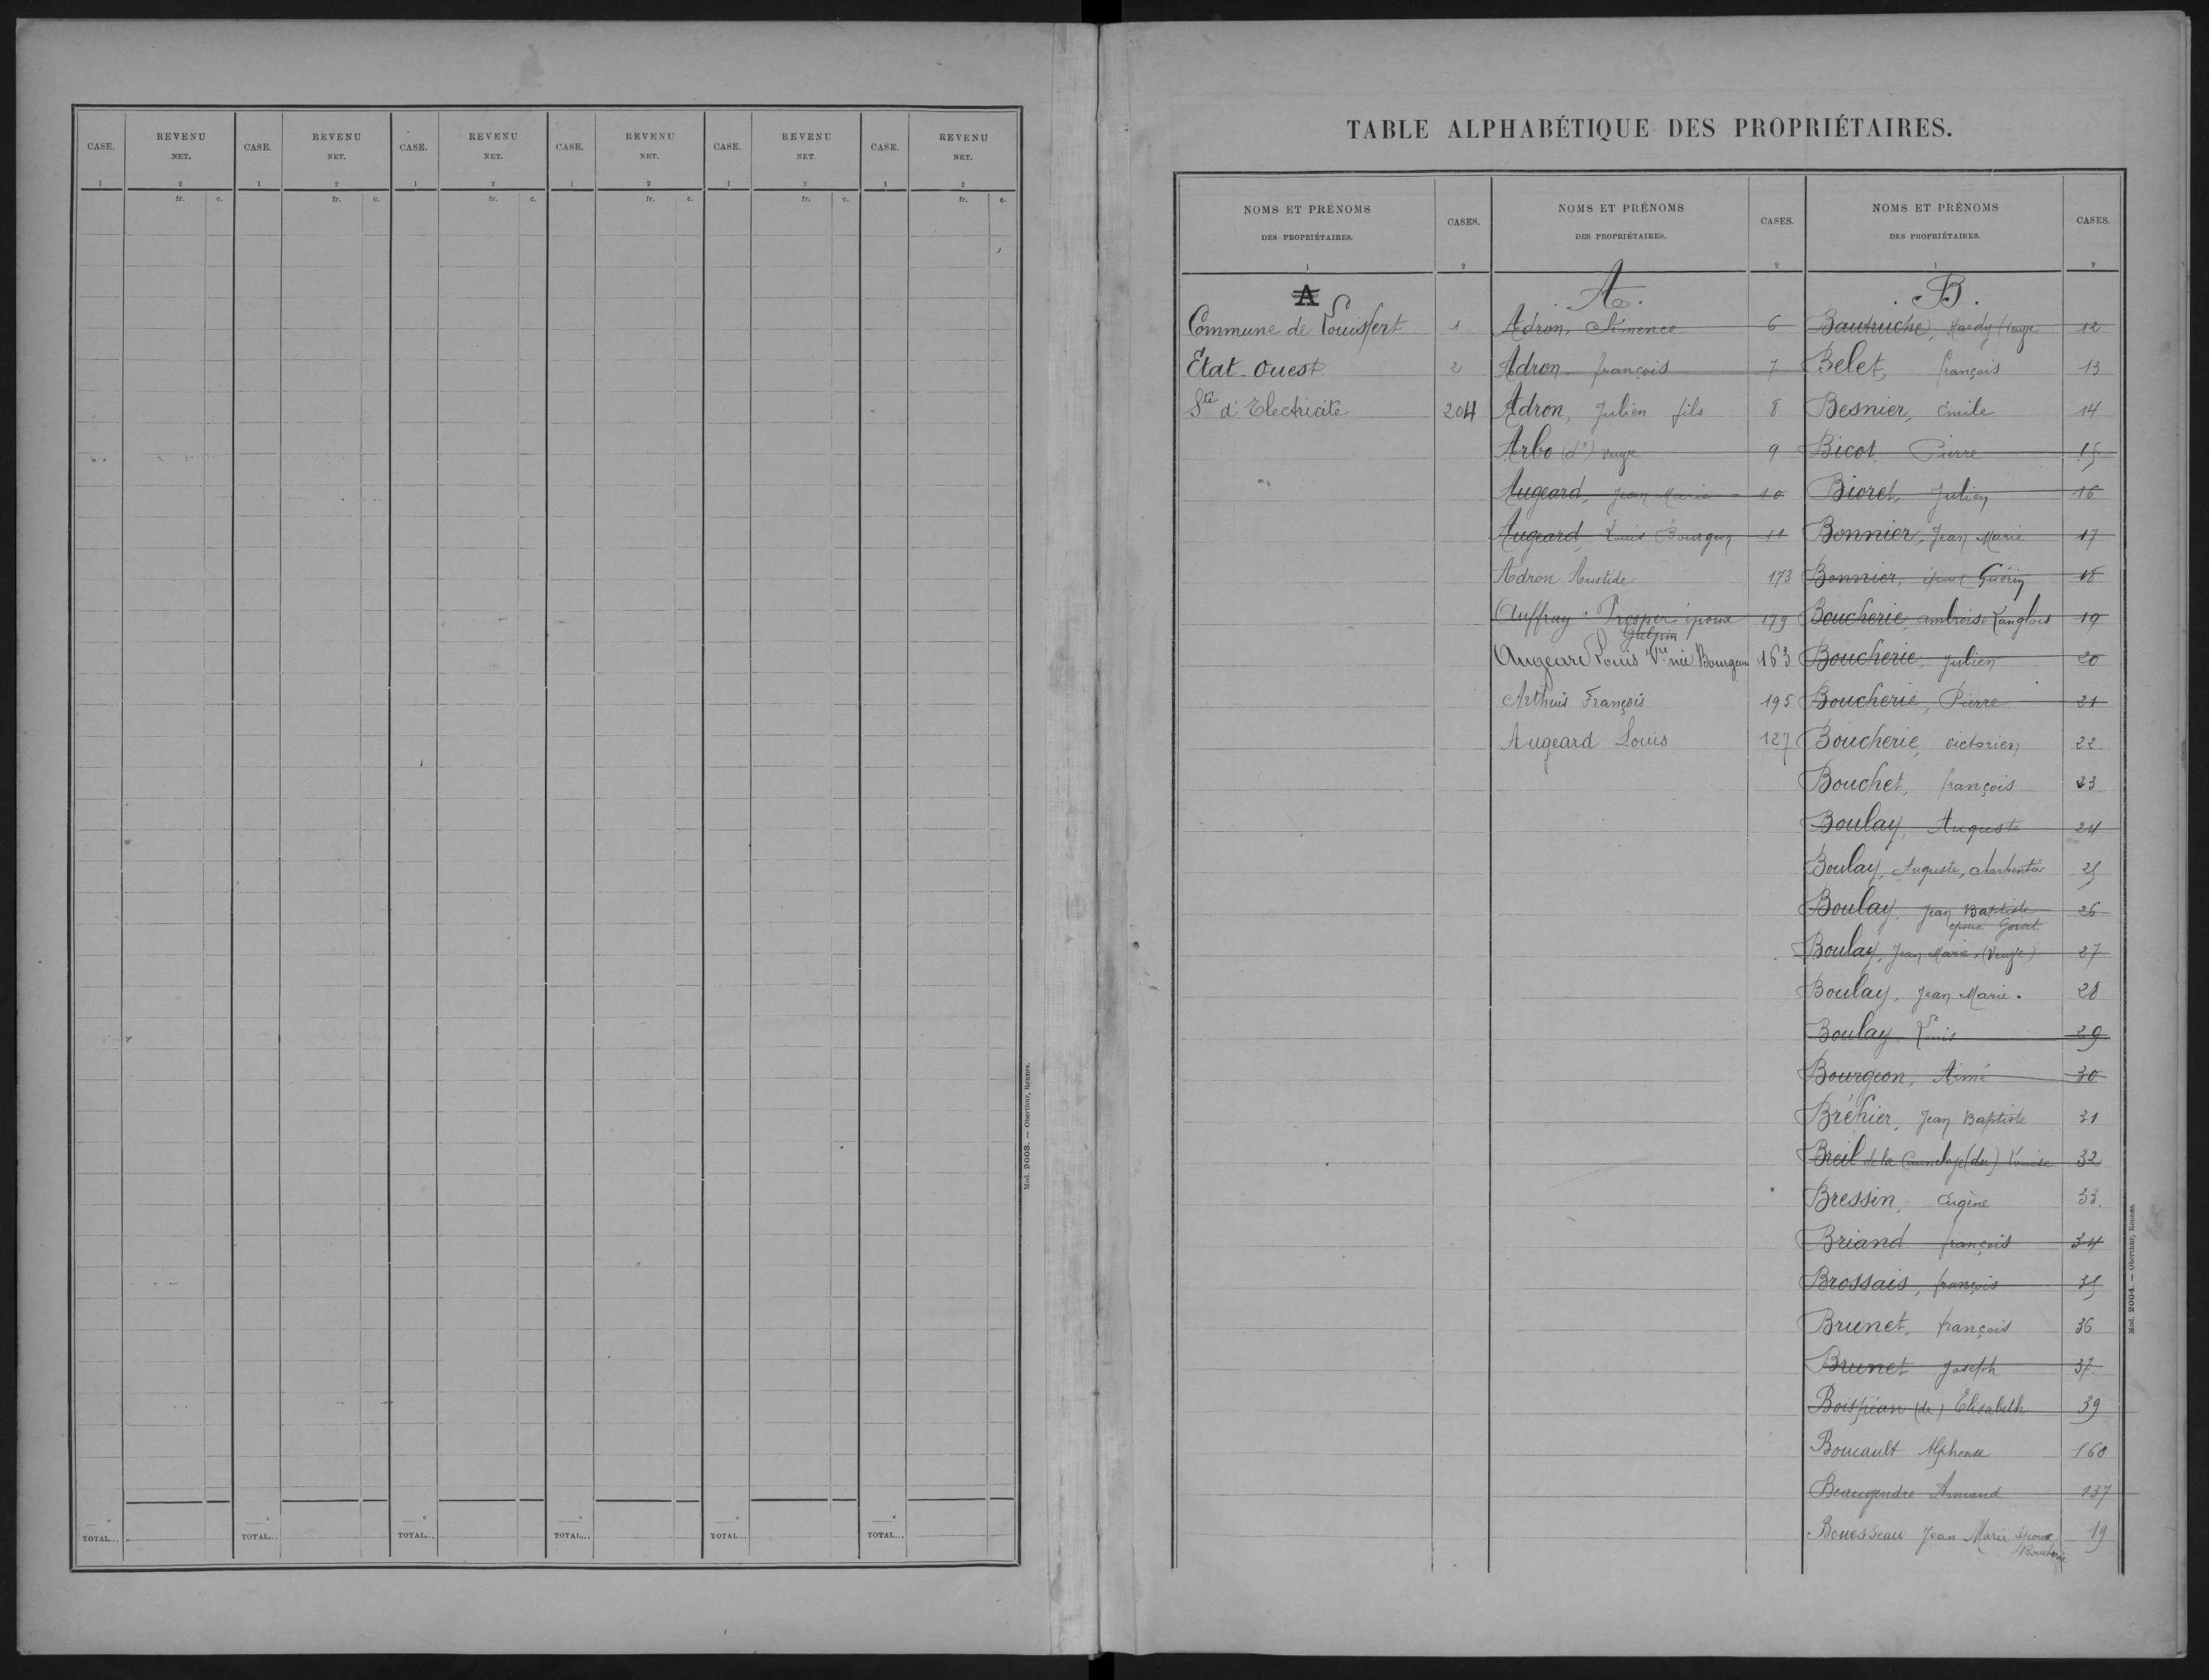 CASE. REVENU NET. CASE. REVENU NET. CASE. REVENU NET. CASE. REVENU NET. CASE. REVENU NET. CASE. REVENU NET.
1 2 1 2 1 2 1 2 1 2 1 2
fr. c. fr. c. fr. c. fr. c. fr. c. fr. c.
TOTAL... TOTAL... TOTAL... TOTAL... TOTAL... TOTAL...
Mod. 2003. — Oberthur, Rennes.
TABLE ALPHABÉTIQUE DES PROPRIÉTAIRES.
NOMS ET PRÉNOMS DES PROPRIÉTAIRES. CASES.
1 2
A
Commune de Louisfert 1
Etat-Ouest 2
Sté d'Electricité 204
NOMS ET PRÉNOMS DES PROPRIÉTAIRES. CASES.
2
A.
Adron, Clémence 6
Adron françois 7
Adron, Julien fils 8
Arbo (d') veuve 9
Augeard, Jean Marie 10
Augeard, Louis Bourgeon 11
Adron Aristide 173
Auffray Prosper époux 179
Galpin
Augeard Louis Vve née Bourgeon 163
Arthuis François 195
Augeard Louis 127
NOMS ET PRÉNOMS DES PROPRIÉTAIRES. CASES.
1 2
B.
Bautruche, Hardy (veuve 12
Belet, françois 13
Besnier, émile 14
Bicot Pierre 15
Bioret, Julien 16
Bonnier, Jean Marie 17
Bonnier, époux Guérin 18
Boucherie, ambroise Langlois 19
Boucherie, Julien 20
Boucherie, Pierre 21
Boucherie, victorien 22.
Bouchet, françois 23
Boulay, Auguste 24
Boulay, Auguste, charpentier 25
Boulay, Jean Baptiste 26
époux
Boulay, Jean Marie, (Veuve) 27
Boulay, Jean Marie. 28
Boulay, Louis 29
Bourgeon, Aimé 30
Bréhier, Jean Baptiste 31
Breil de la (du) Louise 32
Bressin, Eugène 33.
Briand françois 34
Brossais, françois 35
Brunet, françois 36
Brunet Joseph 37.
Boispéan (de) Elisabeth 39
Boucault Alphonse 160
Beaugendre Armand 137
Bouesseau Jean Marie époux 19
Boucherie
Mod. 2004. — Oberthur, Rennes.